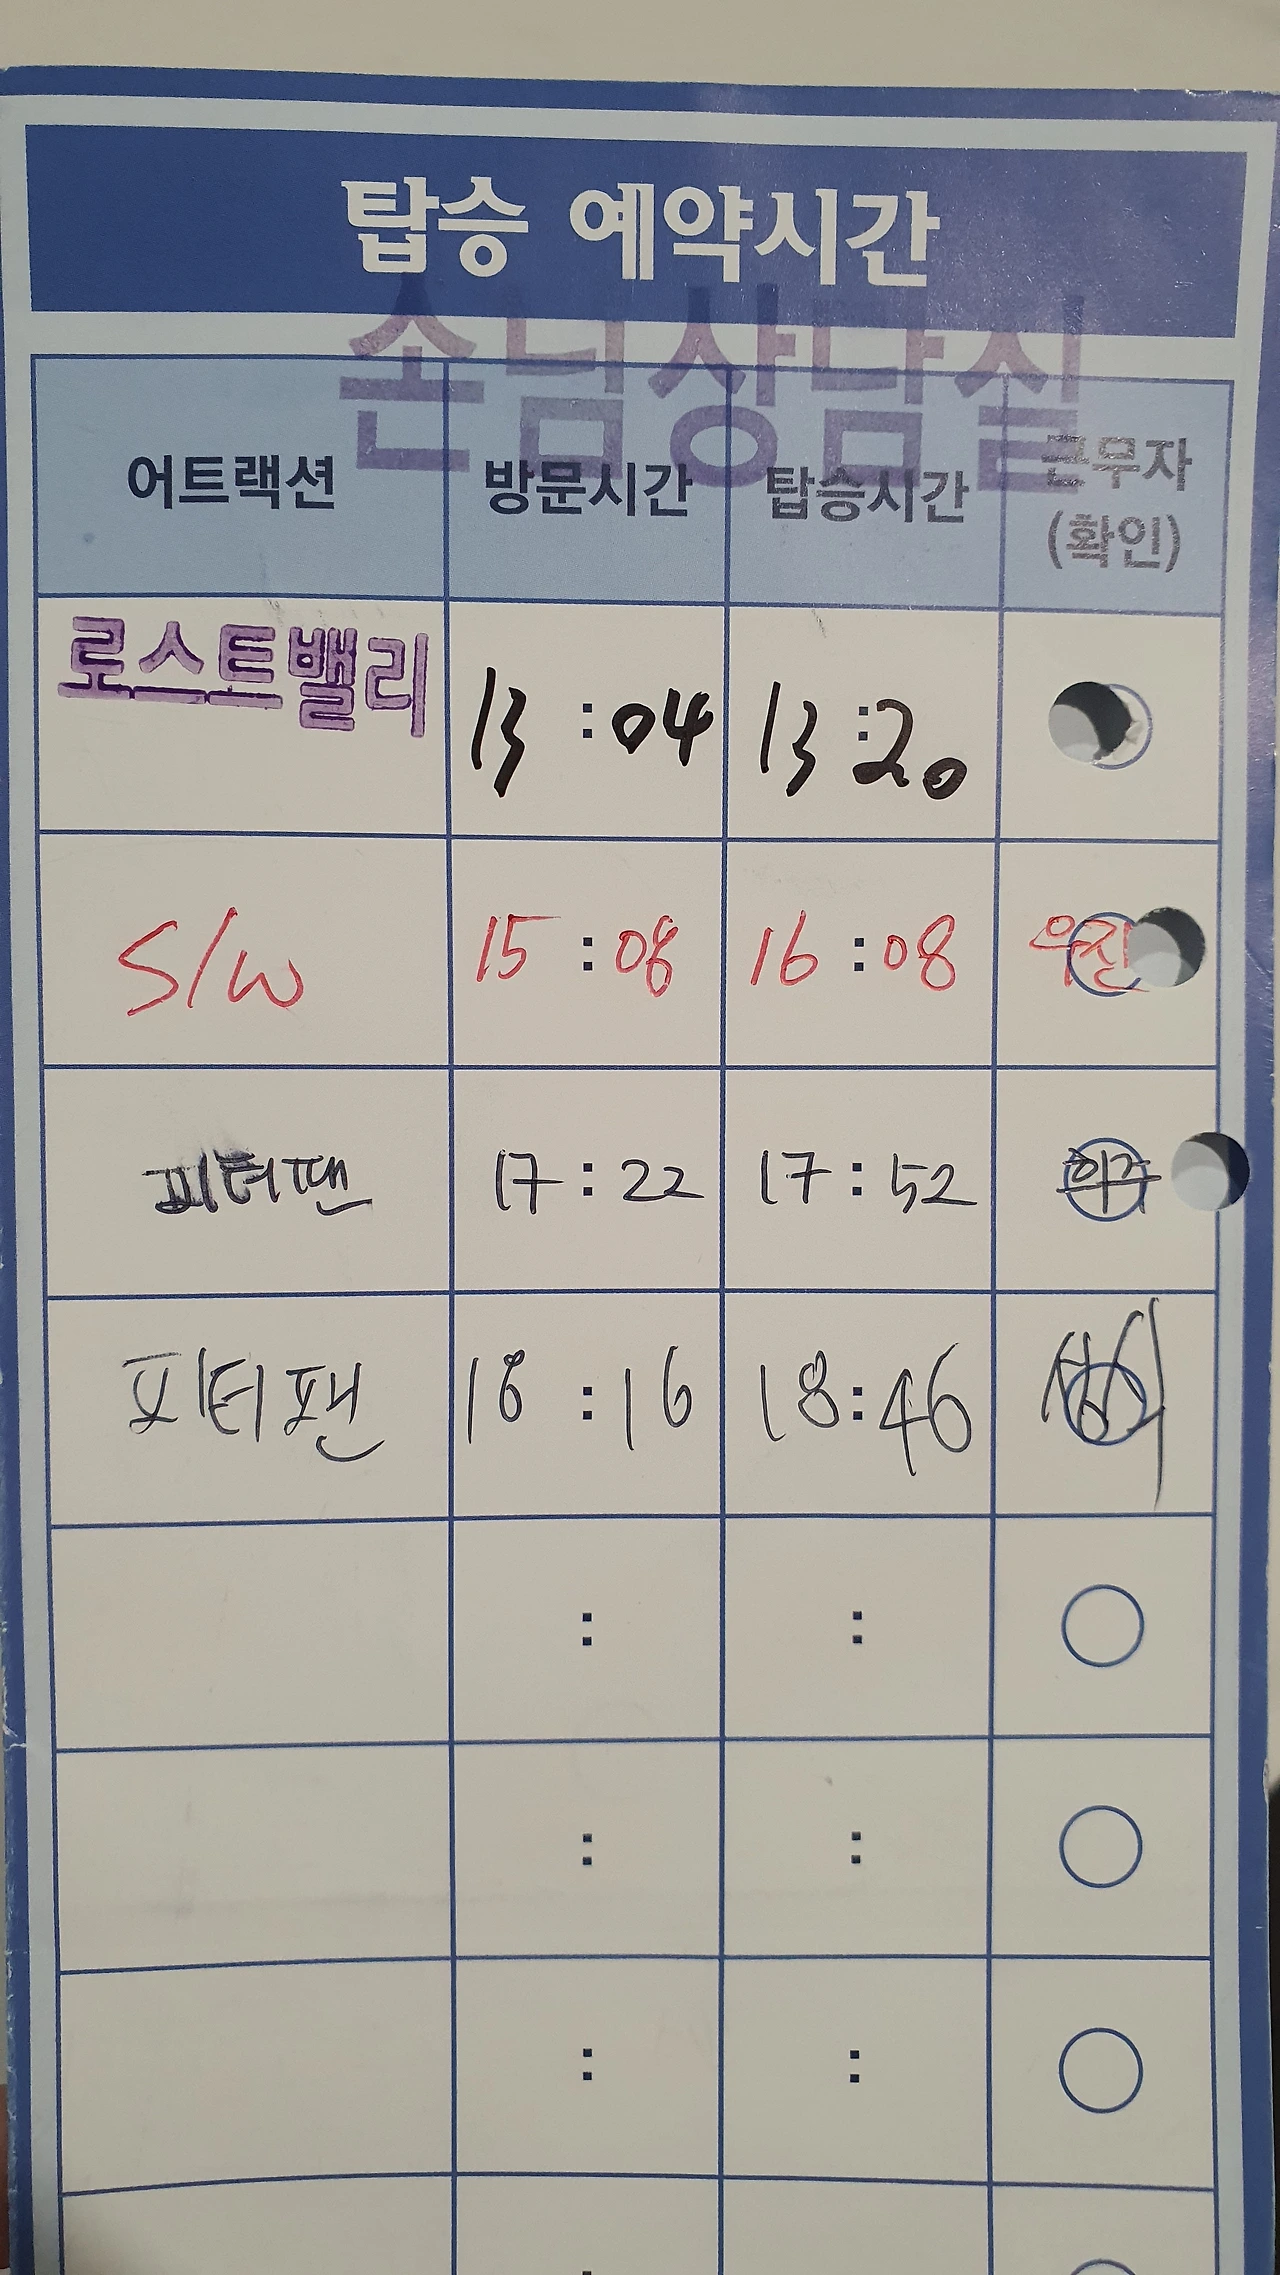 탑승 예약시간
손님상담실
어트랙션 방문시간 탑승시간 근무자
(확인)
로스트밸리 13:04 13:20
S/W 15:08 16:08 우진
피터팬 17:22 17:52
피터팬 18:16 18:46
: :
: :
: :